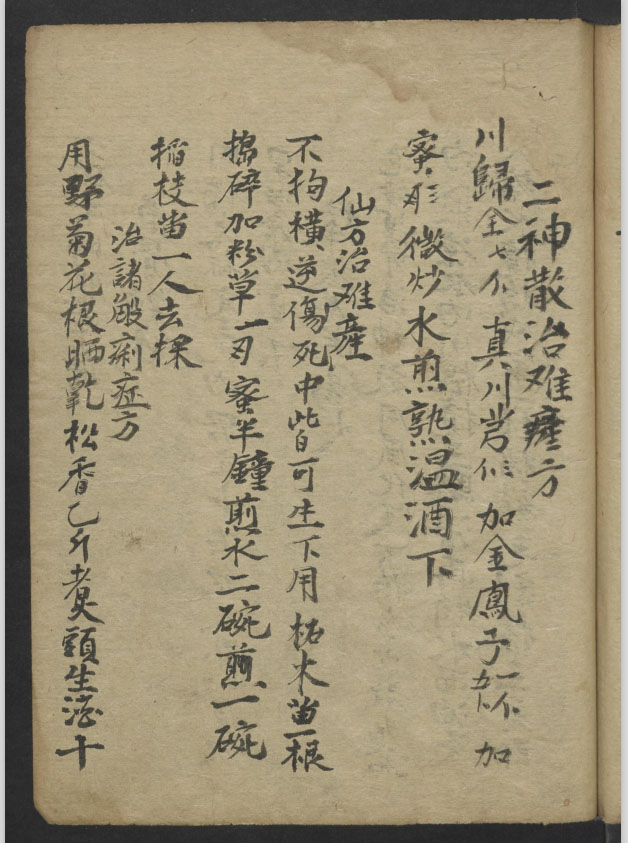 二神散治难産方
川歸全七个 真川芎 加金鳳子 加
蜜 微炒水煎熟温酒下
仙方治难産
不拘横逆傷死中皆可生下用柘木苗一根
搗碎加粉草一刃蜜半鐘煎水二碗煎一碗
稲枝苗一人去採
治諸般痢症方
用野菊花根晒乾松香乙斤煮 生 十